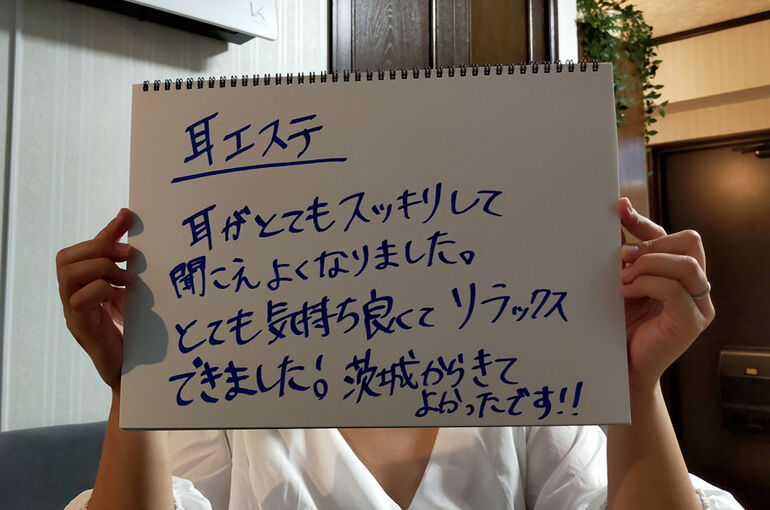 耳エステ
耳がとてもスッキリして
聞こえよくなりました。
とても気持ち良くてリラックス
できました!茨城からきて
よかったです!!
K